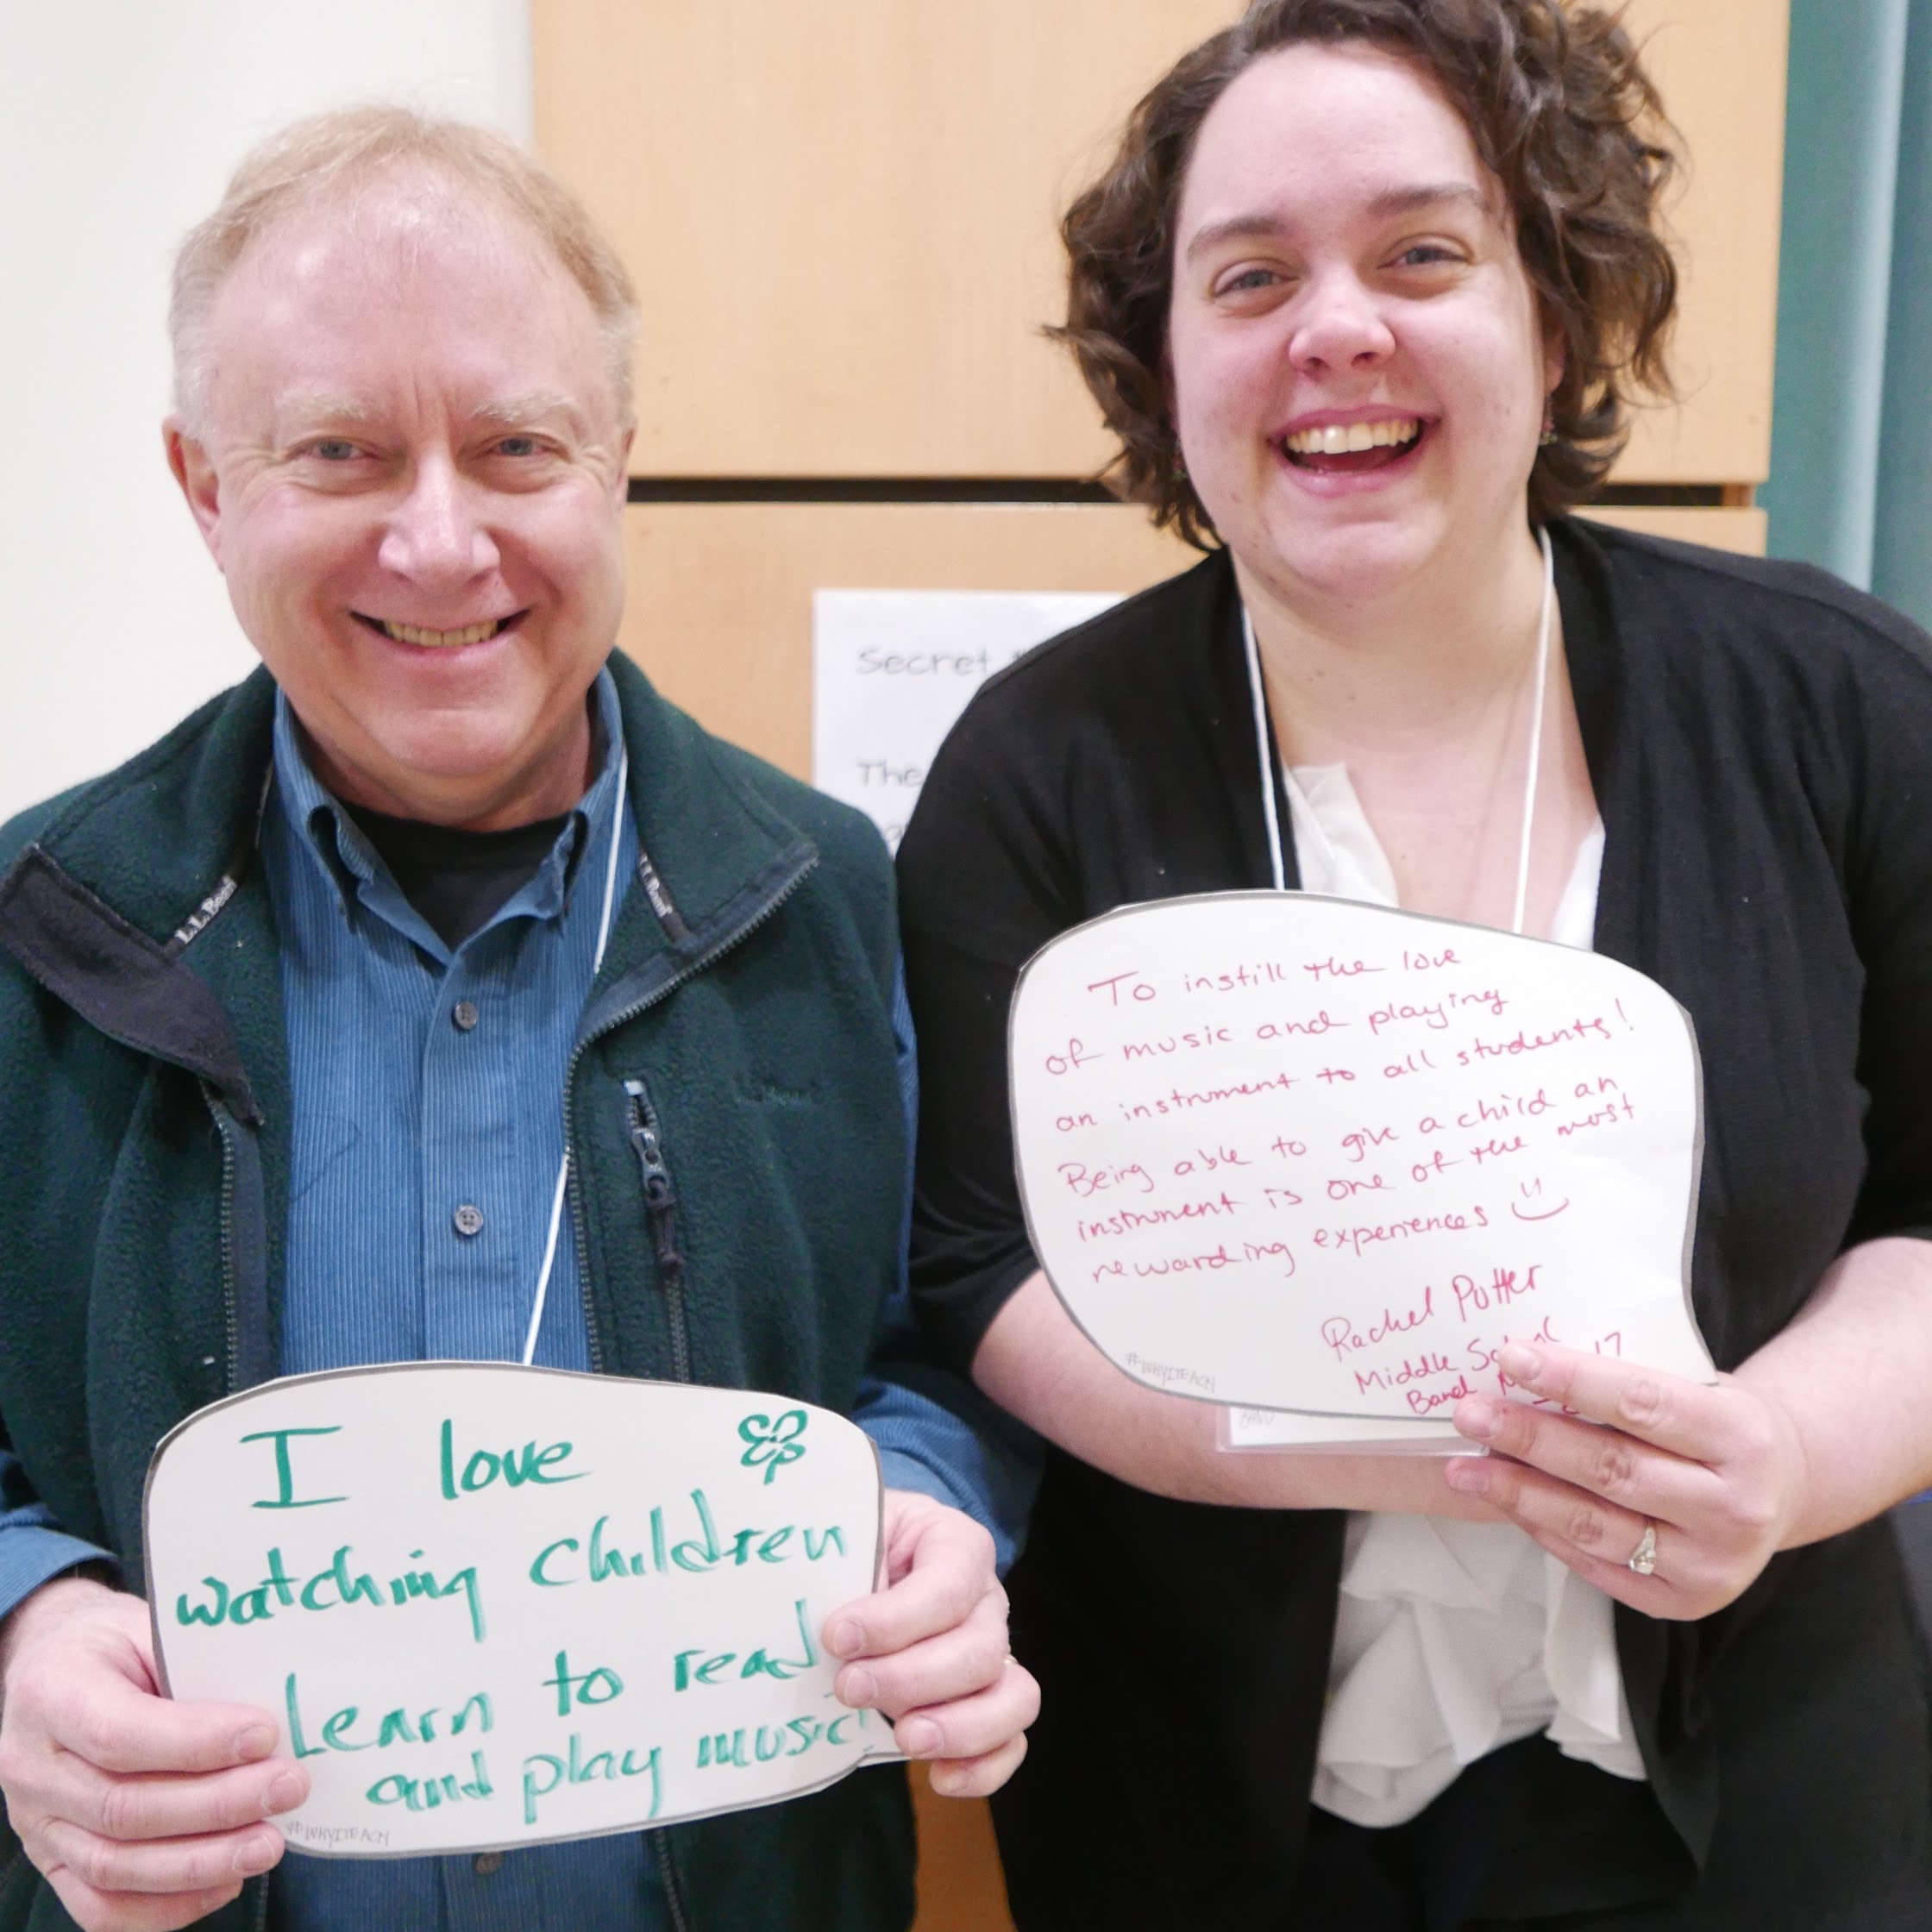 Secret
The
L.L.Bean
I love
watching children
Learn to read
and play music!
#WHYITEACH
To instill the love
of music and playing
an instrument to all students!
Being able to give a child an
instrument is one of the most
rewarding experiences
Rachel Potter
Middle School
Band
17
#WHYITEACH
BAND